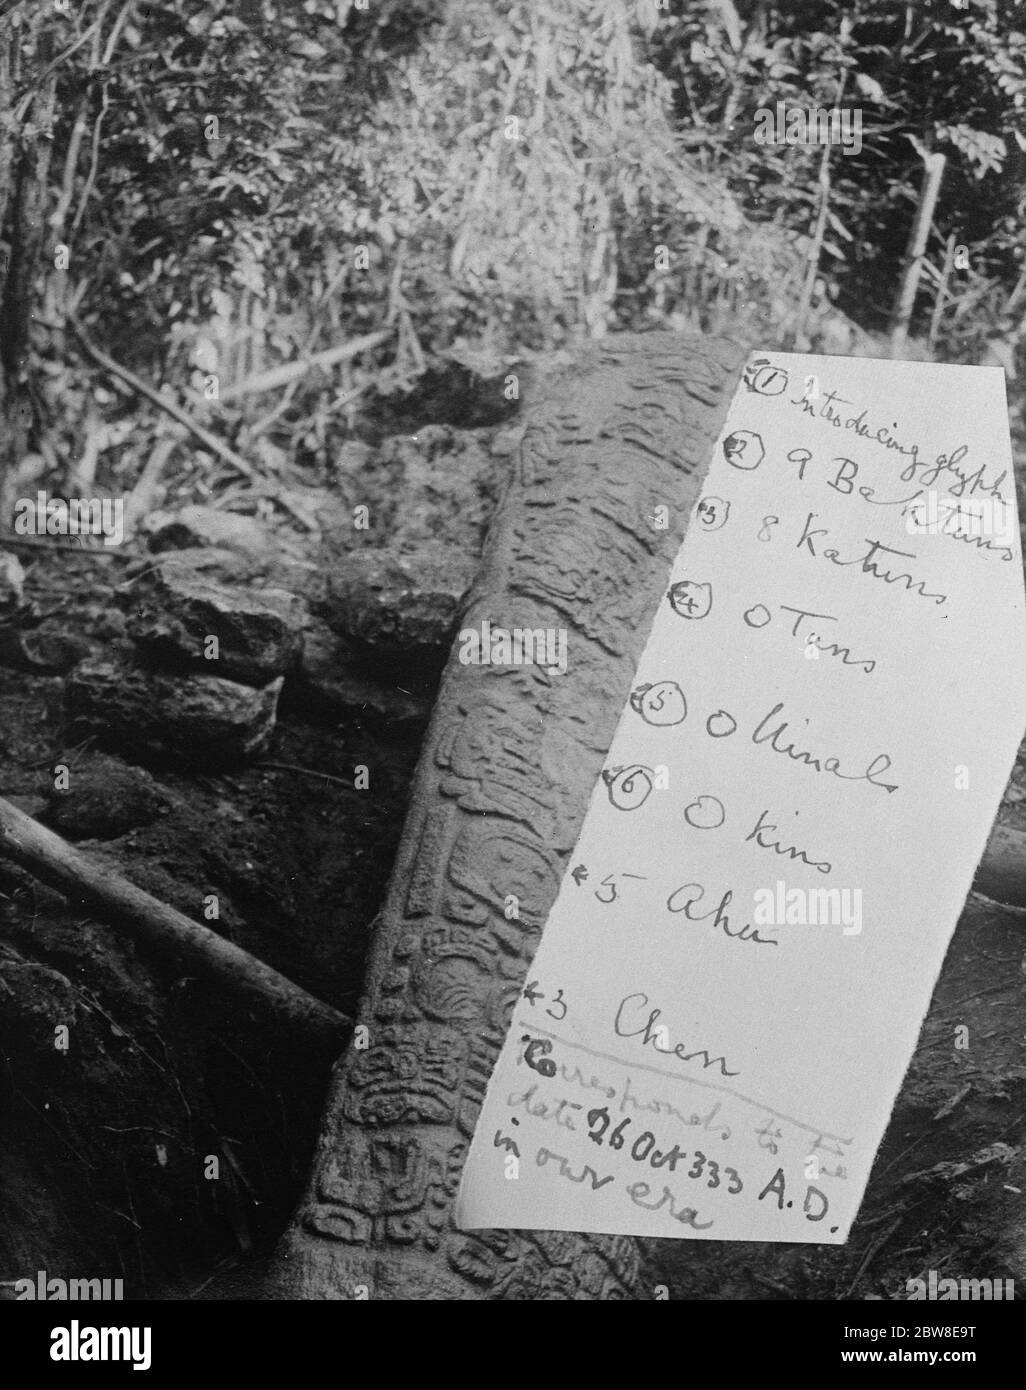 1 Introducing glyph
2 9 Baktuns
3 8 Katuns
4 0 Tuns
5 0 Uinals
6 0 Kins
5 Ahau
3 Chen
Corresponds to the
date 26 Oct 333 A.D.
in our era
alamy
Image ID: 2BW8E9T
www.alamy.com